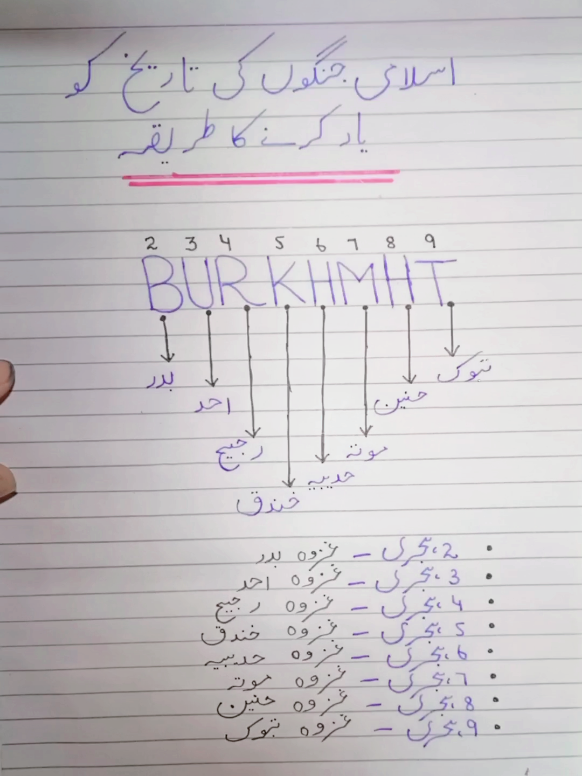 اسلامی جنگوں کی تاریخ کو
یاد کرنے کا طریقہ
2 3 4 5 6 7 8 9
BURKHMHT
تبوک
بدر
حنین
احد
موتہ
رجیع
حدیبیہ
خندق
• 2، ہجری – غزوہ بدر
• 3، ہجری – غزوہ احد
• 4، ہجری – غزوہ رجیع
• 5، ہجری – غزوہ خندق
• 6، ہجری – غزوہ حدیبیہ
• 7، ہجری – غزوہ موتہ
• 8، ہجری – غزوہ حنین
• 9، ہجری – غزوہ تبوک